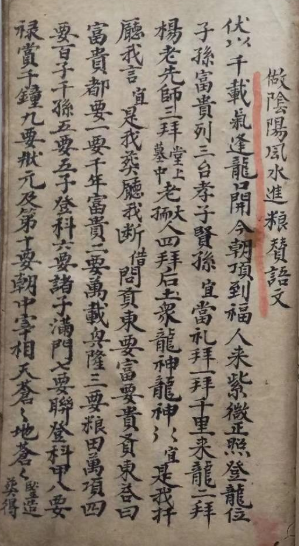 做陰陽風水進粮贊語文
伏以千載氣逢龍口開今朝頂到福人来紫微正照登龍位
子孫富貴列三台孝子賢孫宜當礼拜一拜千里来龍二拜
楊老先師三拜堂上老大人墓中四拜后土衆龍神龍神〻宜是我扦
廳我言宜是我葬廳我断借問貢東要富要貴東答曰
富貴都要一要千年富貴二要萬載興隆三要粮田萬項四
要百子千孫五要五子登科六要諸子滿門七要聯登科甲八要
禄賞千鐘九要狀元及第十要朝中宰相天蒼〻地蒼〻竪造葬得